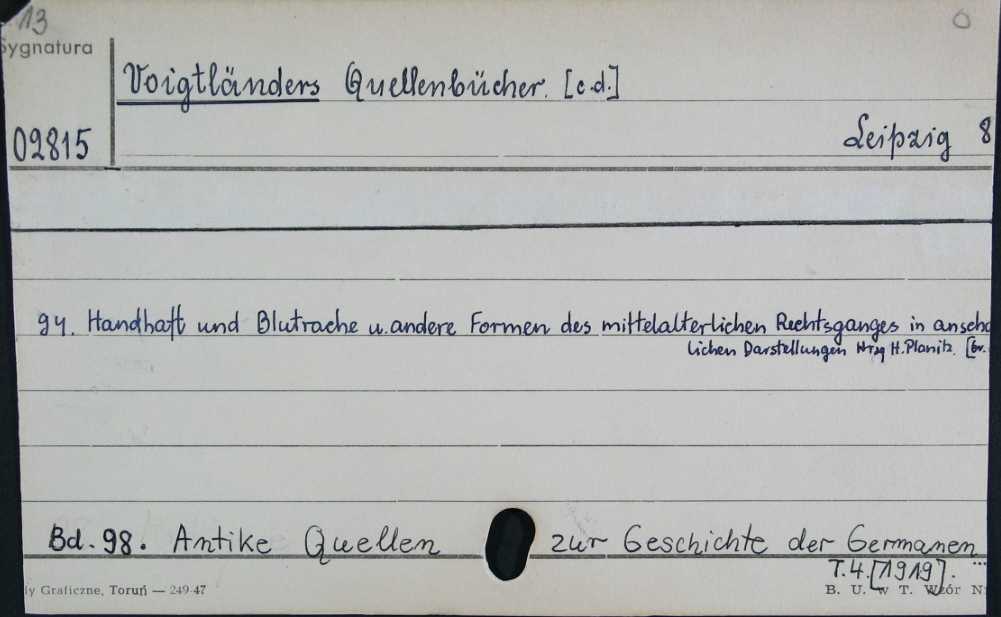 13
Sygnatura
Voigtländers Quellenbücher. [c.d.]
02815
Leipzig 8
94. Handhaft und Blutrache u. andere Formen des mittelalterlichen Rechtsganges in anscha
lichen Darstellungen Hrsg H. Planitz. [Br.
Bd. 98. Antike Quellen zur Geschichte der Germanen ...
T.4. [1919].
ly Graficzne, Toruń — 249-47
B. U. w T. Wzór N